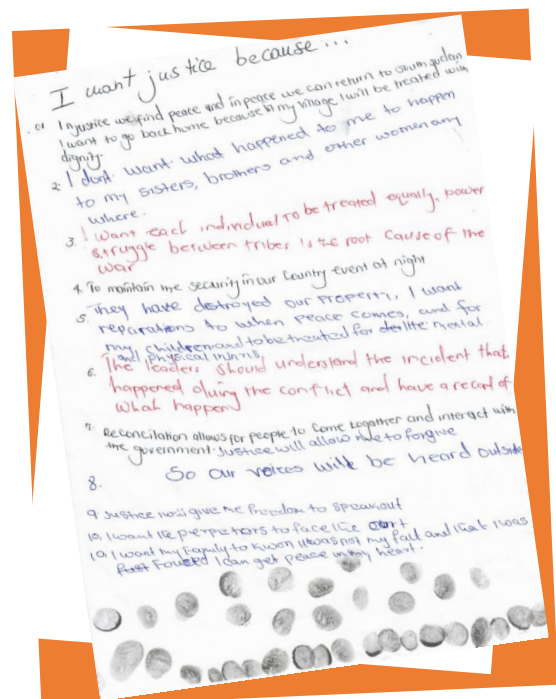 I want justice because...
01 Injustice we find peace and in peace we can return to south sudan
I want to go back home because in my village I will be treated with
dignity.
2. I dont want what happened to me to happen
to my sisters, brothers and other women any
where.
3. I want each individual to be treated equally, power
struggle between tribes is the root cause of the
war
4. To maintain the security in our country event at night
5. They have destroyed our property, I want
reparations to when peace comes, and for
my children and to be treated for mental
and physical
6. The leaders should understand the incident that
happened during the conflict and have a record of
what happen
7. Reconciliation allows for people to come together and interact with
the government. Justice will allow me to forgive
8. So our voices will be heard outside
9 Justice will give me freedom to speakout
10, I want the perpretors to face the court
10, I want my Family to know it was not my fall and that I was
I can get peace in my heart.